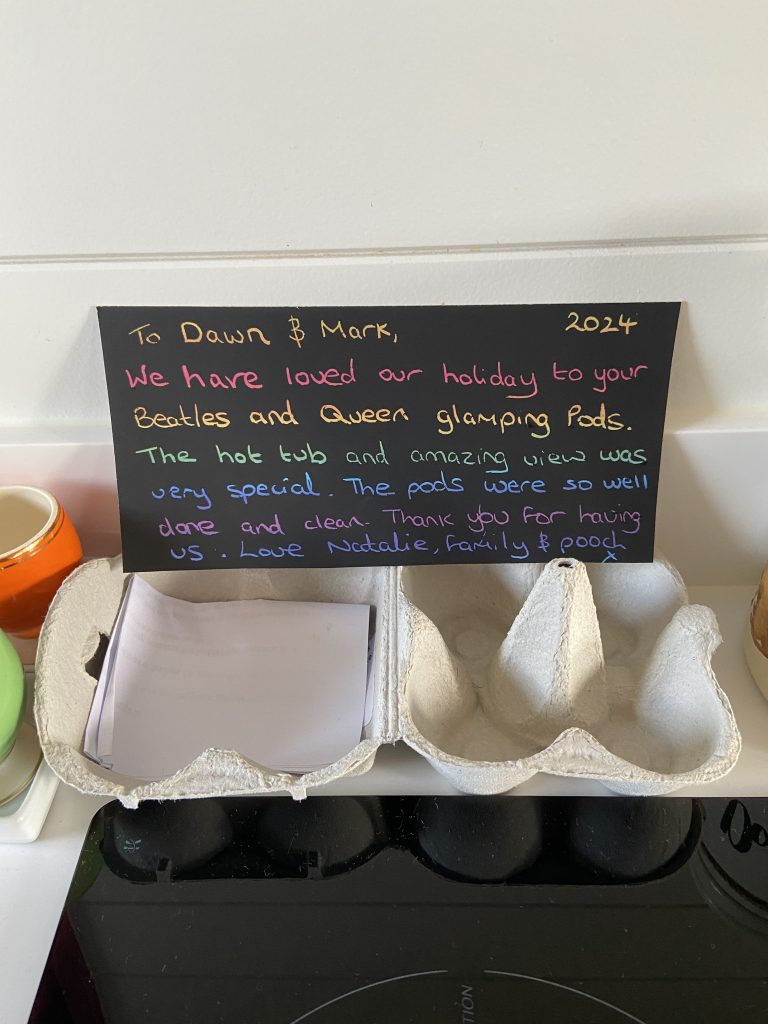 To Dawn & Mark, 2024
We have loved our holiday to your
Beatles and Queen glamping Pods.
The hot tub and amazing view was
very special. The pods were so well
done and clean. Thank you for having
us. Love Natalie, family & pooch
x